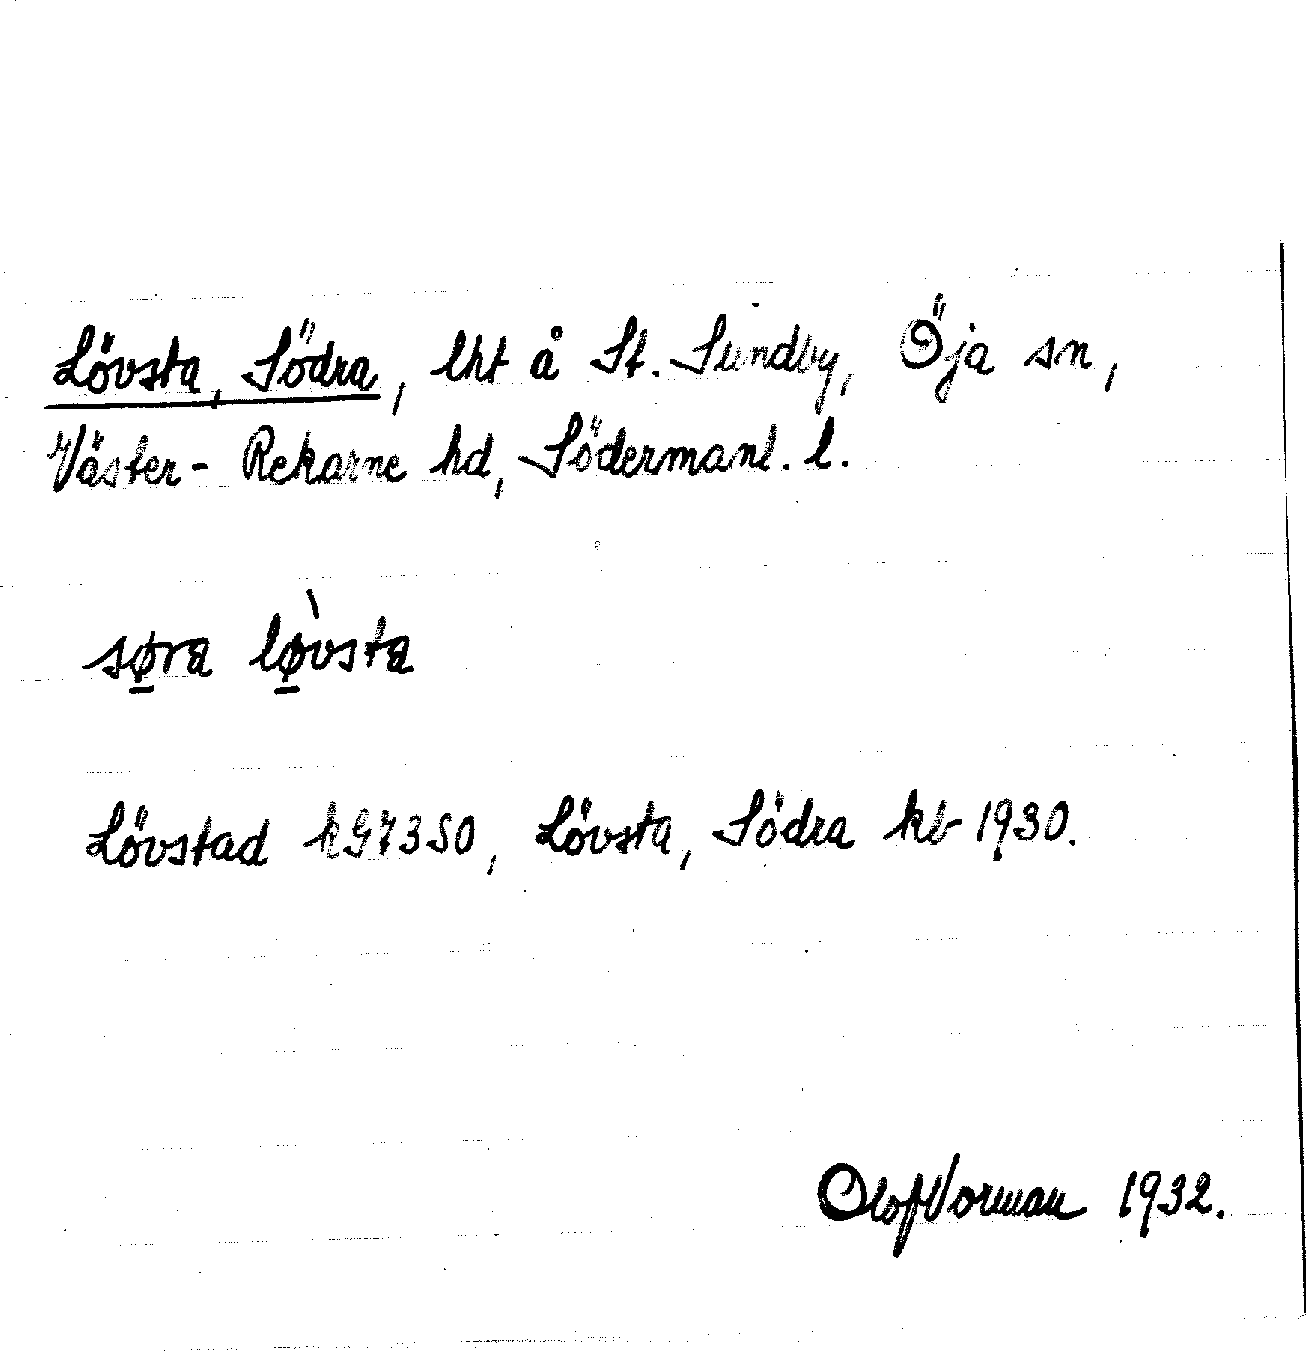 Lövsta, Södra, lht å St. Sundby, Öja sn,
Väster-Rekarne hd, Södermanl. l.
sø̱ra lø̱̀vsta
Lövstad kG73SO, Lövsta, Södra kb 1930.
Olof Vorman 1932.